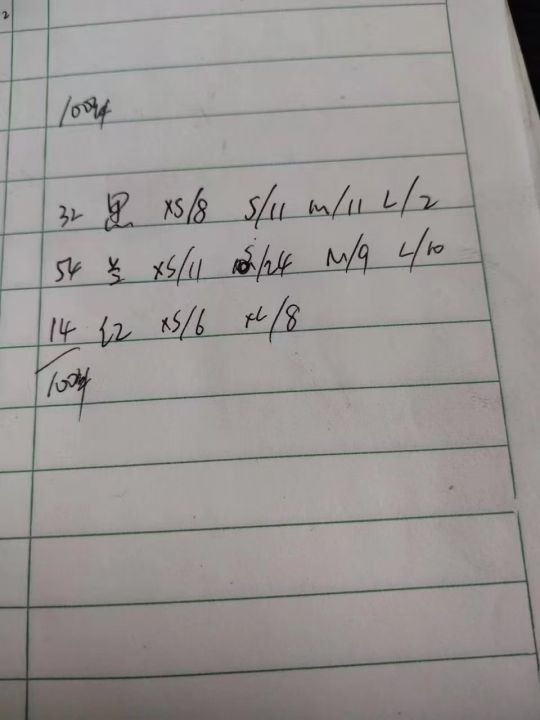 100件
32 黑 XS/8 S/11 M/11 L/2
54 兰 XS/11 S/24 M/9 L/10
14 红 XS/6 XL/8
100件